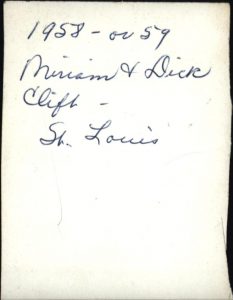 1958 - or 59
Miriam & Dick
Clift -
St. Louis